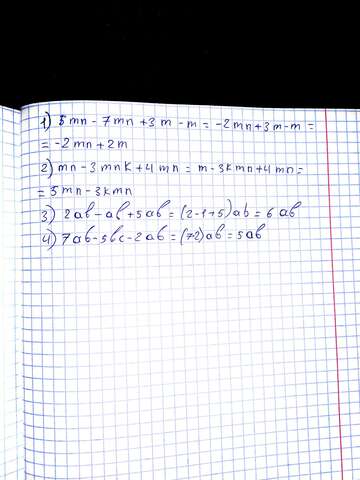 1) 5mn - 7mn + 3m - m = -2mn + 3m - m =
= -2mn + 2m
2) mn - 3mnk + 4mn = m - 3kmn + 4mn =
= 5mn - 3kmn
3) 2ab - ab + 5ab = (2-1+5)ab = 6ab
4) 7ab - 5bc - 2ab = (72)ab = 5ab